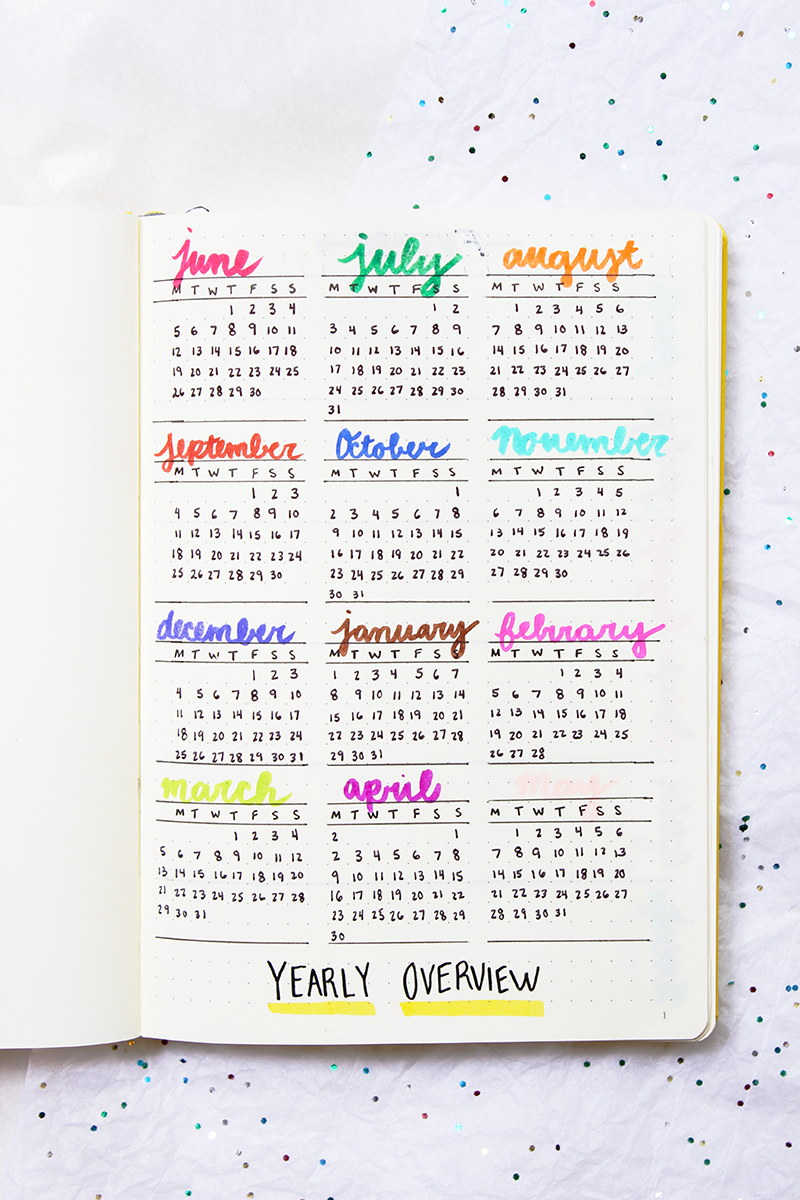 june
M T W T F S S
1 2 3 4
5 6 7 8 9 10 11
12 13 14 15 16 17 18
19 20 21 22 23 24 25
26 27 28 29 30
july
M T W T F S S
1 2
3 4 5 6 7 8 9
10 11 12 13 14 15 16
17 18 19 20 21 22 23
24 25 26 27 28 29 30
31
august
M T W T F S S
1 2 3 4 5 6
7 8 9 10 11 12 13
14 15 16 17 18 19 20
21 22 23 24 25 26 27
28 29 30 31
september
M T W T F S S
1 2 3
4 5 6 7 8 9 10
11 12 13 14 15 16 17
18 19 20 21 22 23 24
25 26 27 28 29 30
October
M T W T F S S
1
2 3 4 5 6 7 8
9 10 11 12 13 14 15
16 17 18 19 20 21 22
23 24 25 26 27 28 29
30 31
november
M T W T F S S
1 2 3 4 5
6 7 8 9 10 11 12
13 14 15 16 17 18 19
20 21 22 23 24 25 26
27 28 29 30
december
M T W T F S S
1 2 3
4 5 6 7 8 9 10
11 12 13 14 15 16 17
18 19 20 21 22 23 24
25 26 27 28 29 30 31
january
M T W T F S S
1 2 3 4 5 6 7
8 9 10 11 12 13 14
15 16 17 18 19 20 21
22 23 24 25 26 27 28
29 30 31
february
M T W T F S S
1 2 3 4
5 6 7 8 9 10 11
12 13 14 15 16 17 18
19 20 21 22 23 24 25
26 27 28
march
M T W T F S S
1 2 3 4
5 6 7 8 9 10 11 12
13 14 15 16 17 18 19 20
21 22 23 24 25 26 27 28
29 30 31
april
M T W T F S S
2 1
2 3 4 5 6 7 8
9 10 11 12 13 14 15
16 17 18 19 20 21 22
23 24 25 26 27 28 29
30
may
M T W T F S S
1 2 3 4 5 6
7 8 9 10 11 12 13
14 15 16 17 18 19 20
21 22 23 24 25 26 27
28 29 30 31
YEARLY OVERVIEW
1